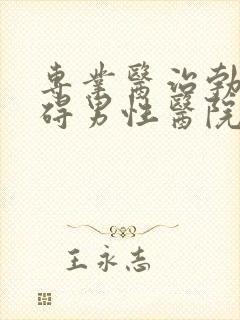 專業醫治勃
碍男性醫院
王永志